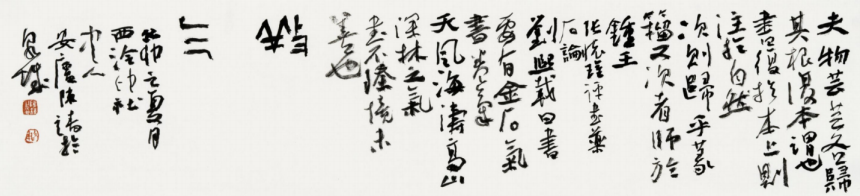 夫物芸芸各歸
其根復本謂也
書復於本上則
注於自然
次則歸乎篆
籀又次者師於
鍾王
張懷瓘評書藥
石論
劉熙載曰書
要有金石氣
書卷氣
天風海濤高山
深林之氣
書不臻境未
善也
之夏月
西泠印社
中人
安慶陳